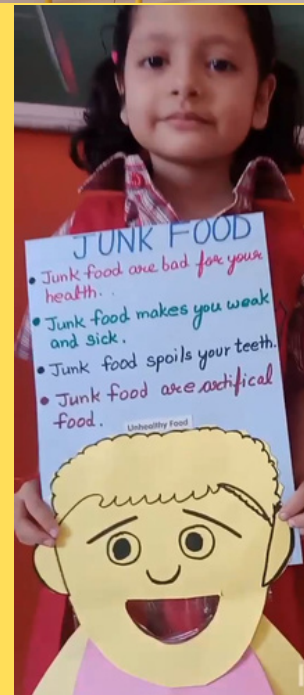 JUNK FOOD
• Junk food are bad for your
health. .
• Junk food makes you weak
and sick.
• Junk food spoils your teeth.
• Junk food are artifical
food.
Unhealthy Food